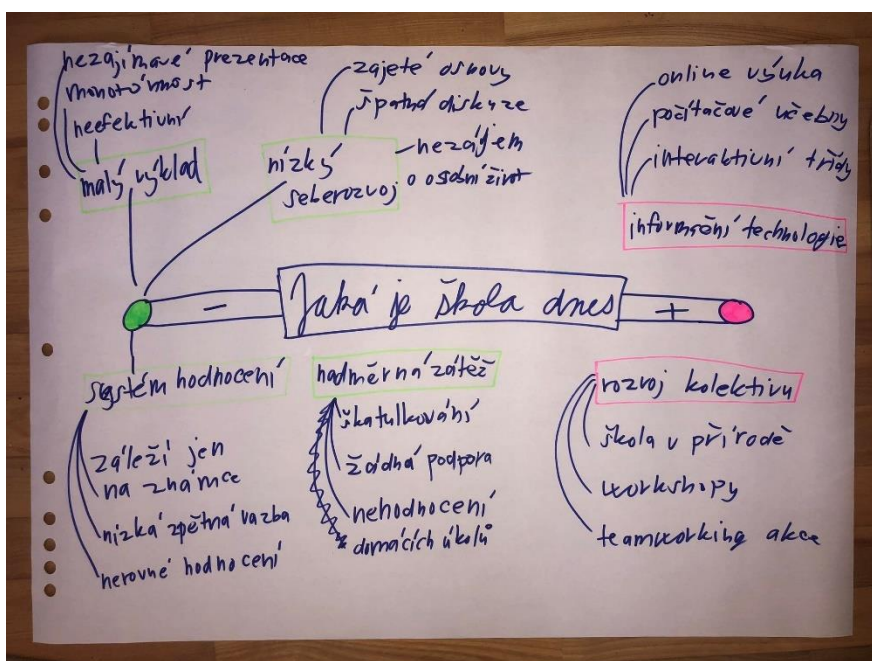 nezajímavé prezentace
monotónnost
neefektivní
malý výklad
zajeté osnovy
špatná diskuze
nezájem
o osobní život
nízký
seberozvoj
online výuka
počítačové učebny
interaktivní třídy
informační technologie
- Jaká je škola dnes +
systém hodnocení
záleží jen
na známce
nízká zpětná vazba
nerovné hodnocení
nadměrná zátěž
škatulkování
žádná podpora
nehodnocení
domácích úkolů
rozvoj kolektivu
škola v přírodě
workshopy
teamworking akce